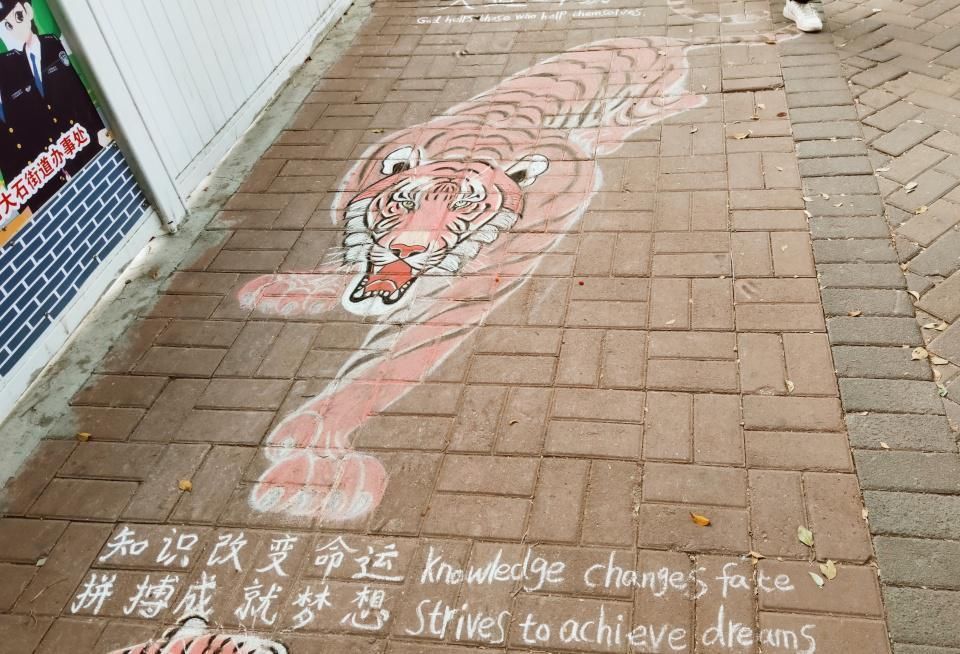 God helps those who help themselves.
大石街道办事处
知识改变命运 Knowledge changes fate
拼搏成就梦想 Strives to achieve dreams